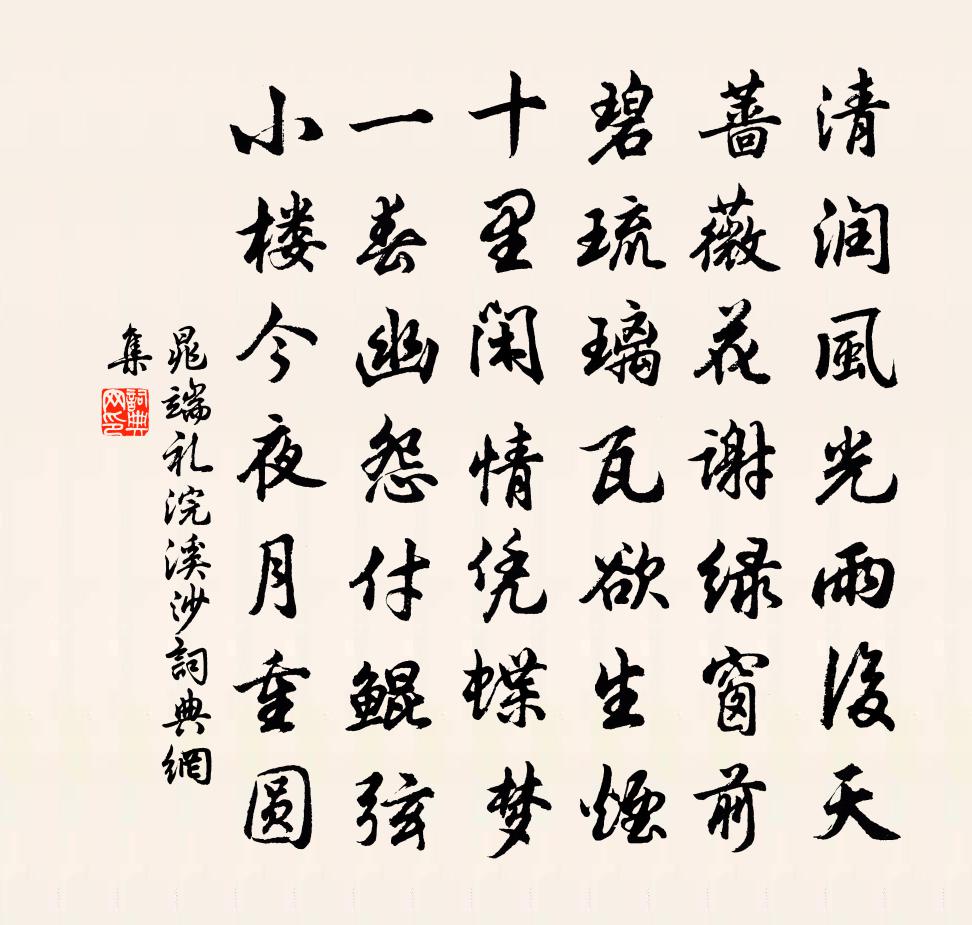 清润風光雨後天
蔷薇花谢绿窗前
碧琉璃瓦欲生煙
十里闲情凭蝶梦
一春幽怨付鲲弦
小楼今夜月重圆
晁端礼浣溪沙詞典網
集
詞典網印